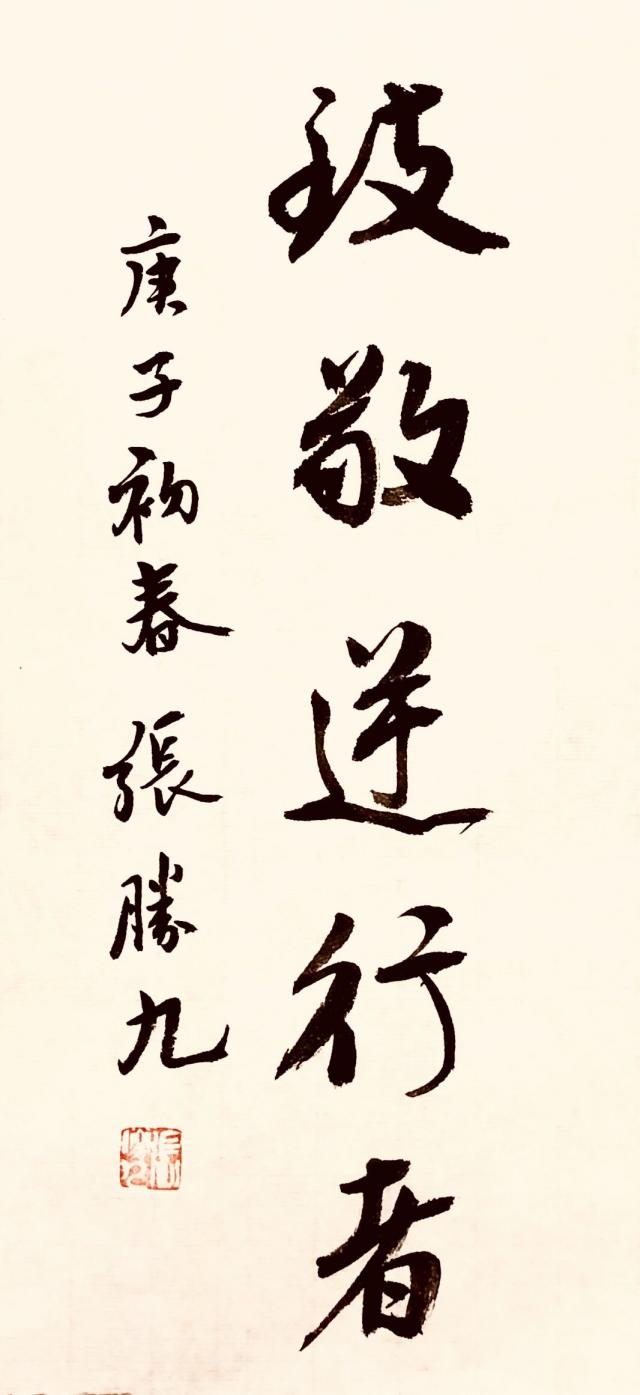 致敬逆行者
庚子初春 張勝九